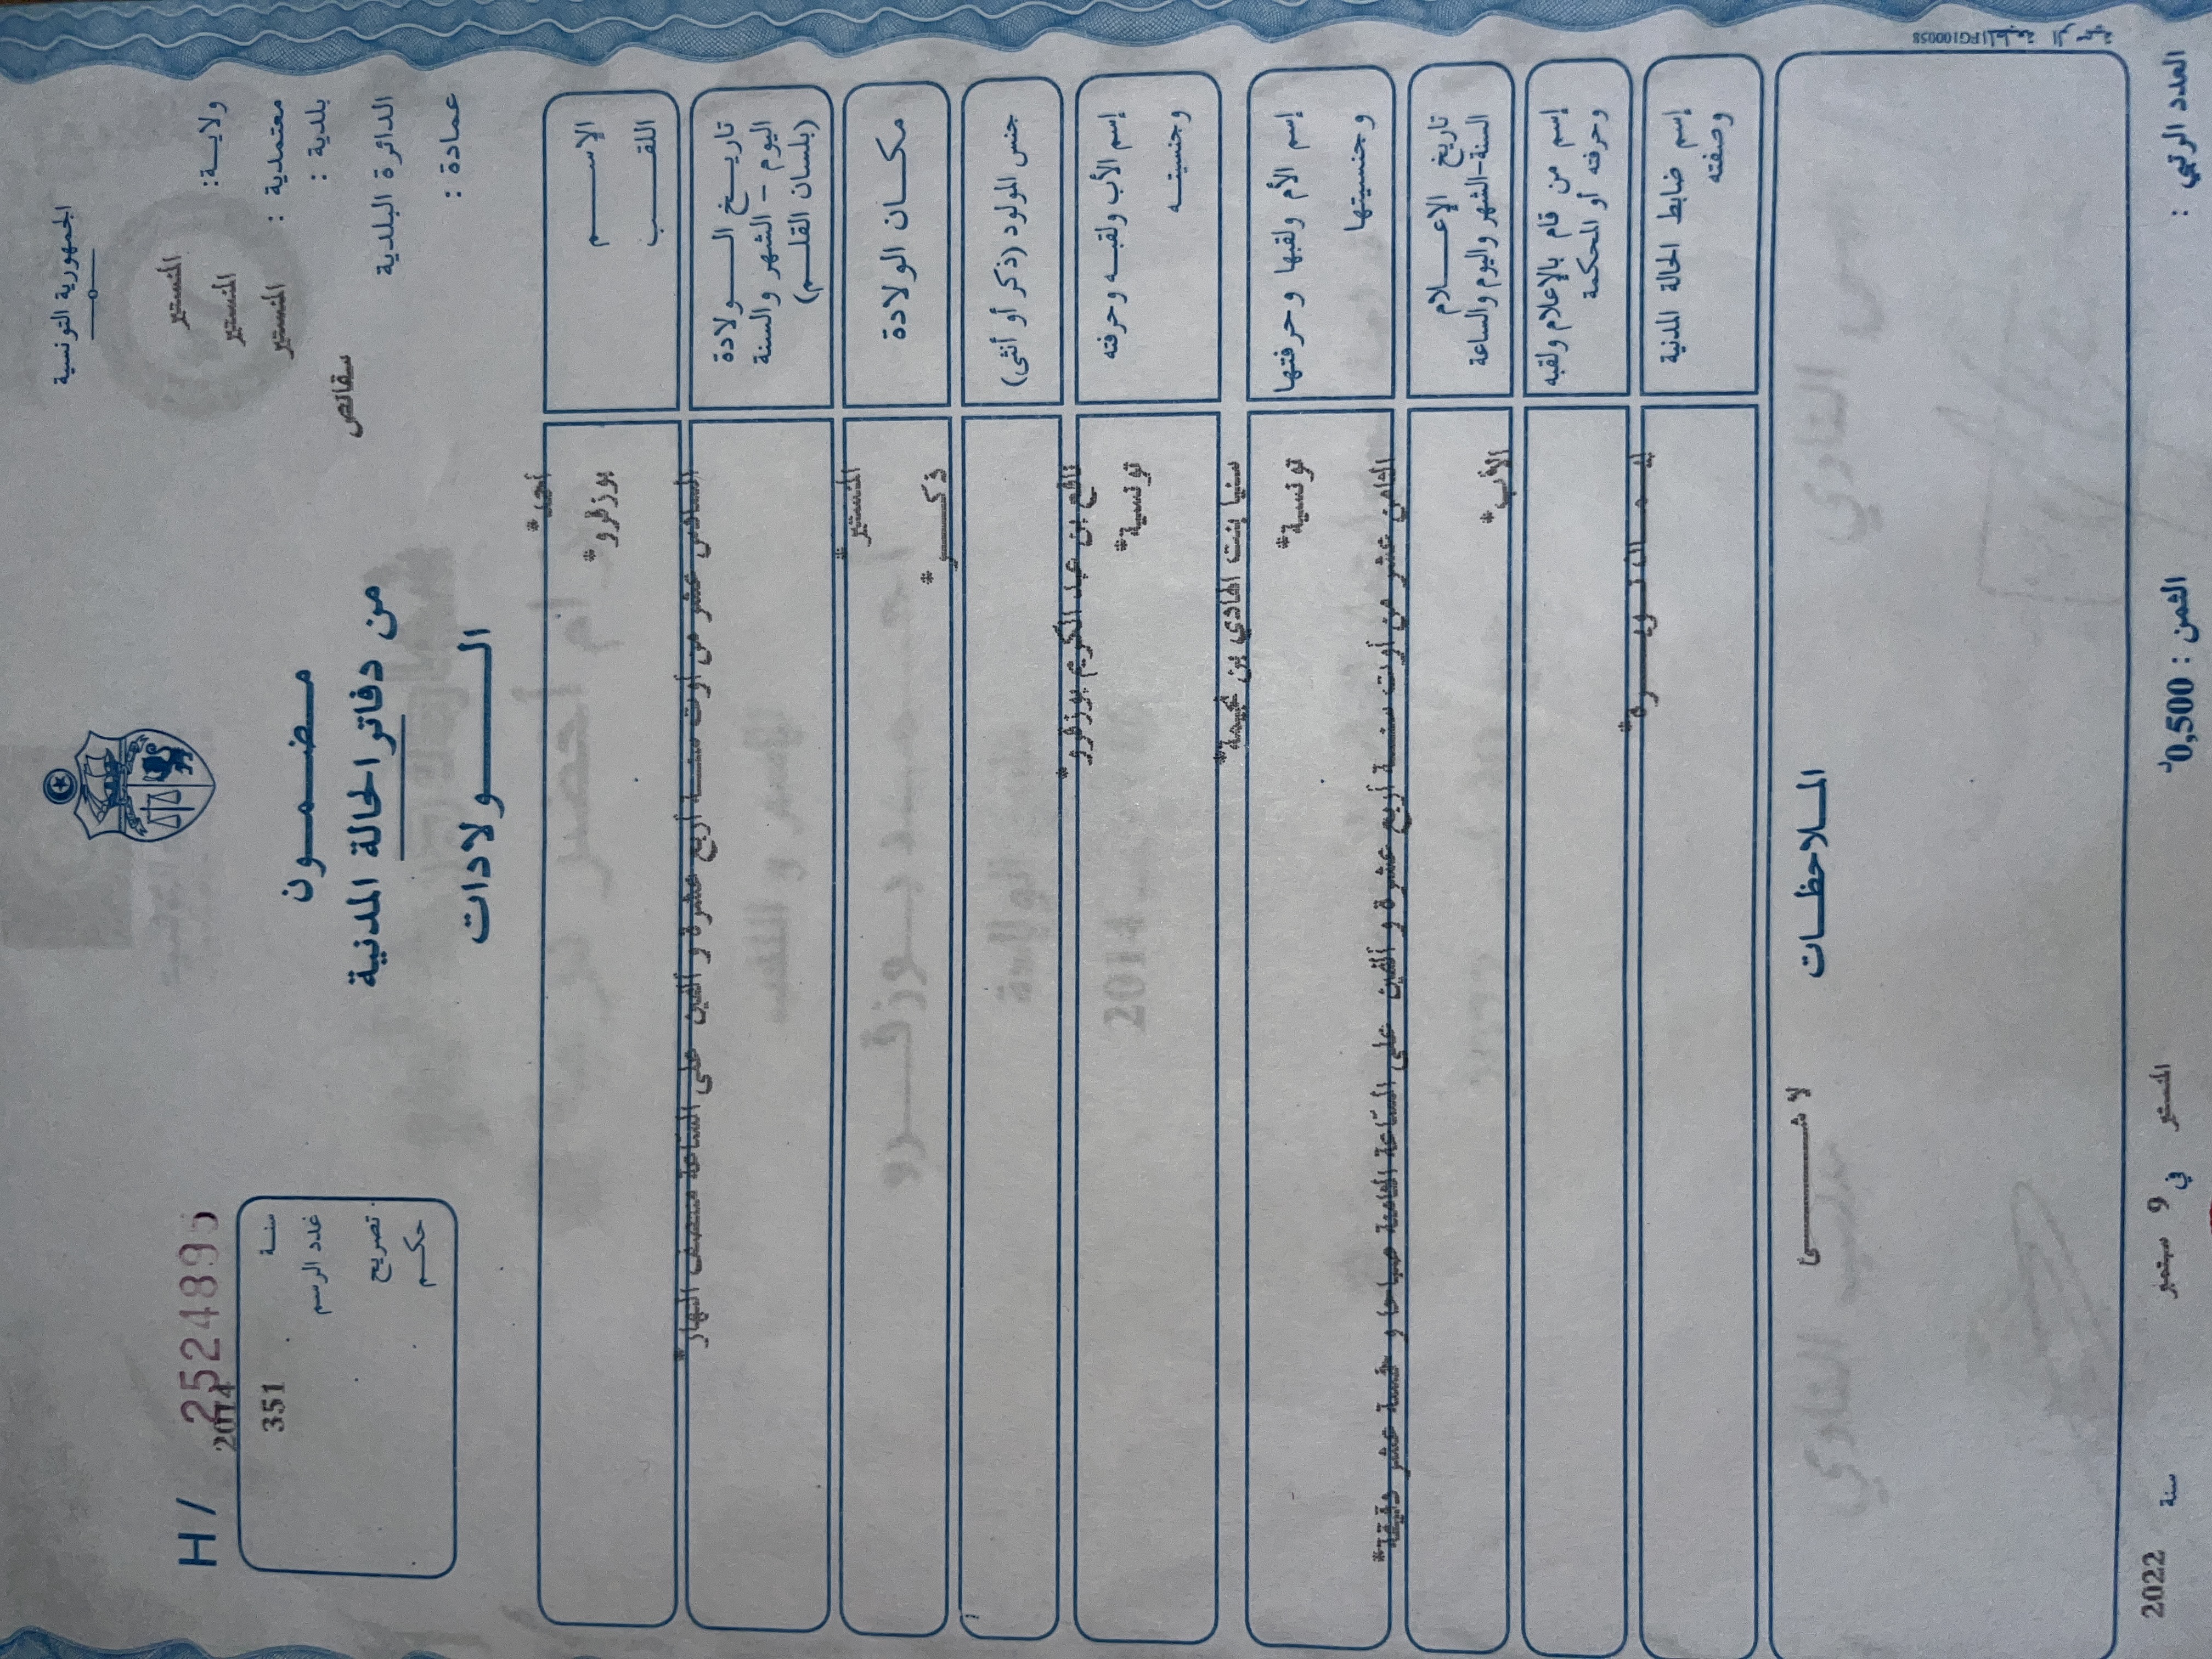 الجمهورية التونسية
ولاية: المنستير
معتمدية : المنستير
بلدية : المنستير
الدائرة البلدية
سقانص
عمادة :
مضمون
من دفاتر الحالة المدنية
الولادات
H / 2524895
سنة 2014
عدد الرسم 351
تصريح
حكم
الإسم
اللقب
أحمد*
بوزقرو*
تاريخ الولادة
اليوم - الشهر والسنة
(بلسان القلم)
السادس عشر من أوت سنة أربع عشرة و ألفين على الساعة منتصف النهار*
مكان الولادة
المنستير*
جنس المولود (ذكر أو أنثى)
ذكر*
إسم الأب ولقبه وحرفته
وجنسيته
نافع بن عبد الكريم بوزقرو*
تونسية*
إسم الأم ولقبها وحرفتها
وجنسيتها
سنيا بنت الهادي بن نجيمة*
تونسية*
تاريخ الإعلام
السنة-الشهر واليوم والساعة
الثامن عشر من أوت سنة أربع عشرة و ألفين على الساعة الثامنة صباحا و خمسة عشر دقيقة*
إسم من قام بالإعلام ولقبه
وحرفته أو المحكمة
الأب*
إسم ضابط الحالة المدنية
وصفته
الملاحظات
لا شيء
العدد الرتبي :
الثمن : 0,500د
المنستير في 9 سبتمبر سنة 2022